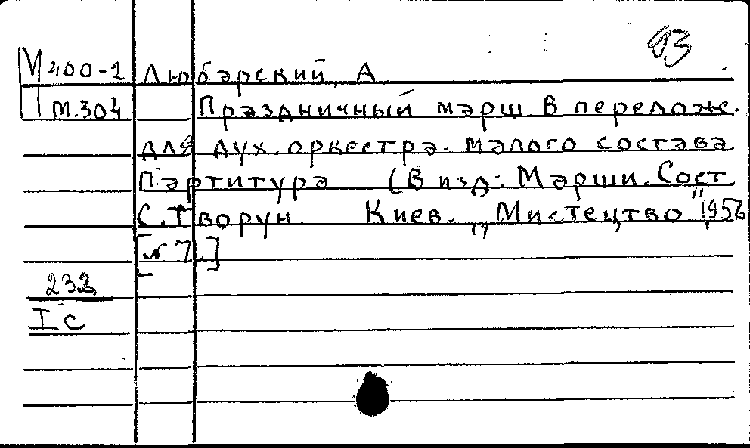 93
М400-2 Любарский, А
М.304 Праздничный марш. В перелож.
для дух. оркестра. малого состава
Партитура (В изд: Марши. Сост
С. Творун. Киев. „Мистецтво", 1956
[№ 7.]
232
I c